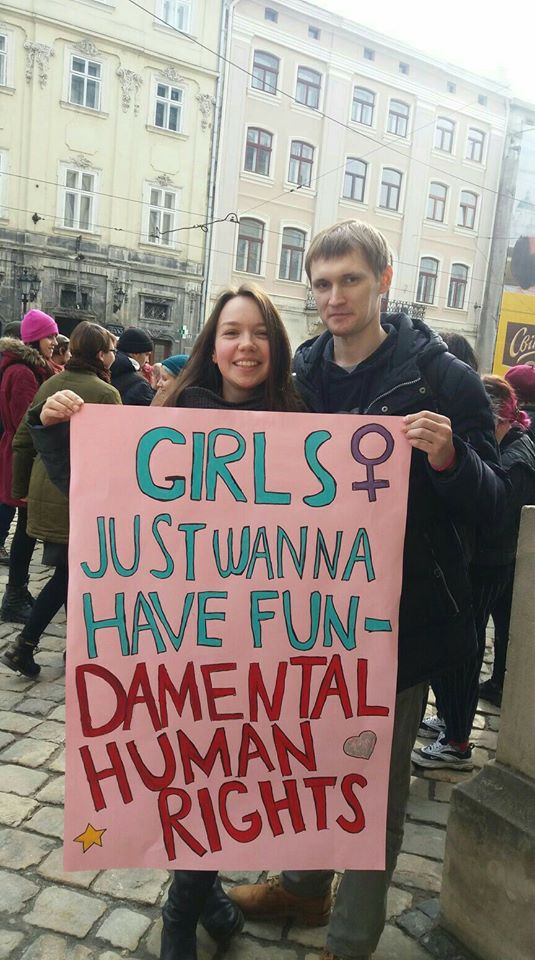 GIRLS ♀
JUST WANNA
HAVE FUN-
DAMENTAL
HUMAN
RIGHTS